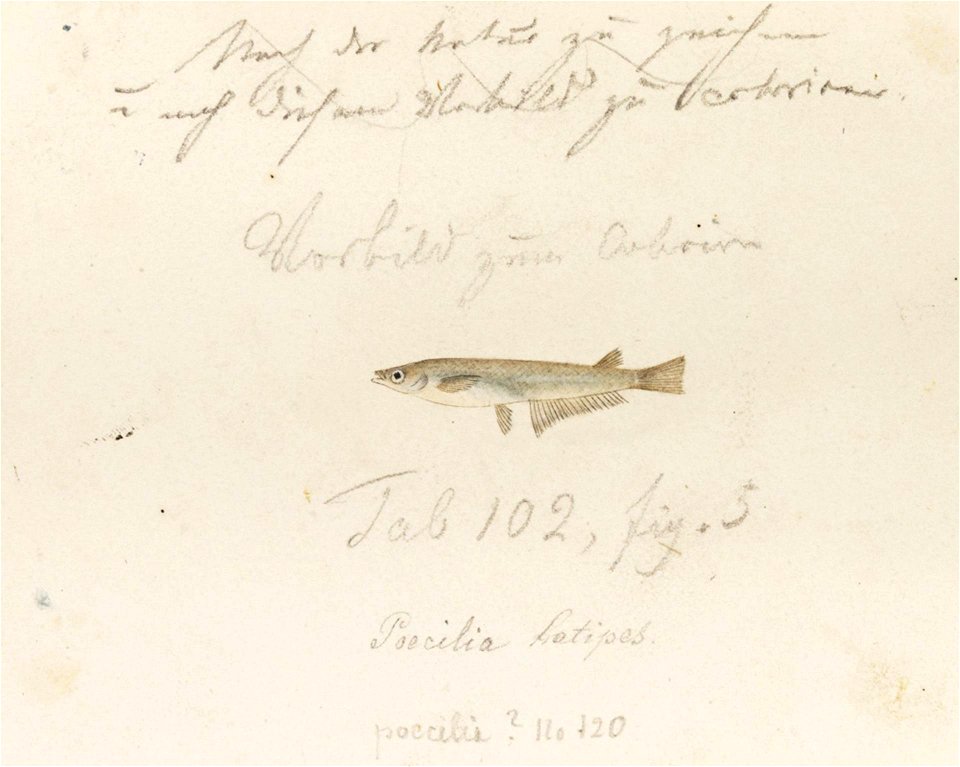 Nach der Natur zu zeichnen
u nach diesem Vorbild zu coloriren.
Vorbild zum Coloriren
Tab 102, fig. 5
Poecilia latipes.
poecilia? No 120